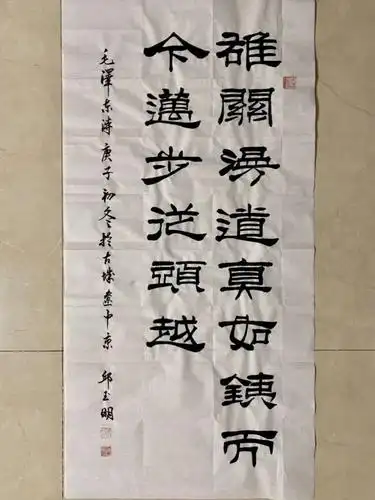 雄關漫道真如銕而
今邁步從頭越
毛澤东詩庚子初冬於古城中京
邱玉明